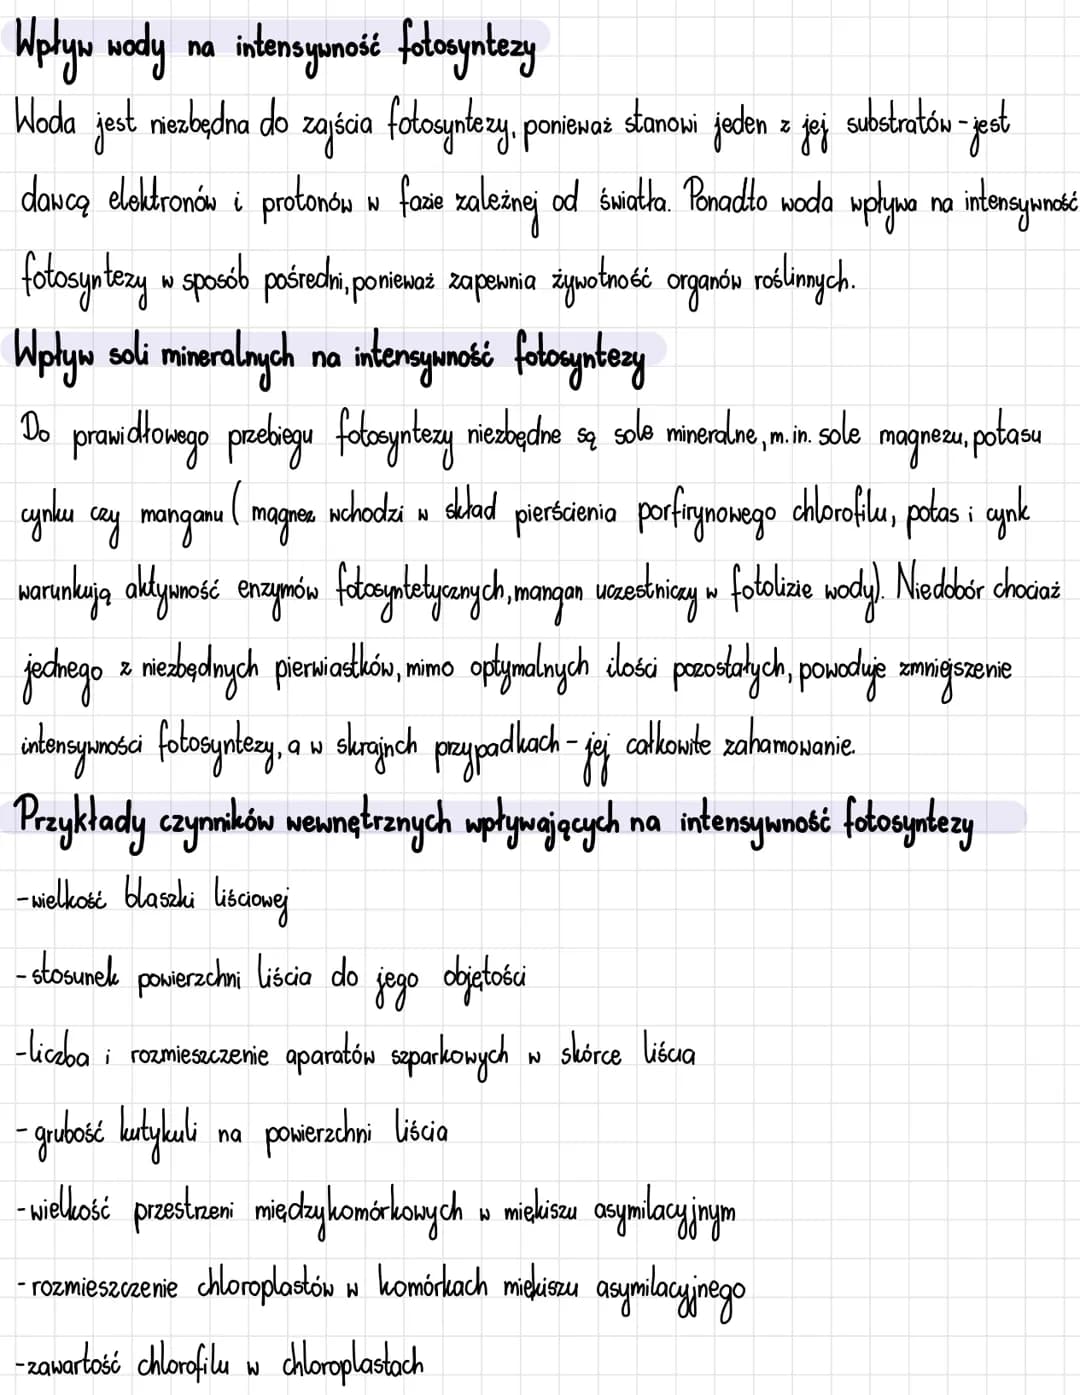 Wpływ wody na intensywność fotosyntezy
Woda jest niezbędna do zajścia fotosyntezy, ponieważ stanowi jeden z jej substratów - jest
dawcą elektronów i protonów w fazie zależnej od światła. Ponadto woda wpływa na intensywność
fotosyntezy w sposób pośredni, ponieważ zapewnia żywotność organów roślinnych.
Wpływ soli mineralnych na intensywność fotosyntezy
Do prawidłowego przebiegu fotosyntezy niezbędne są sole mineralne, m.in. sole magnezu, potasu
cynku czy manganu ( magnez wchodzi w skład pierścienia porfirynowego chlorofilu, potas i cynk
warunkują aktywność enzymów fotosyntetycznych, mangan uczestniczy w fotolizie wody). Niedobór chociaż
jednego z niezbędnych pierwiastków, mimo optymalnych ilości pozostałych, powoduje zmniejszenie
intensywności fotosyntezy, a w skrajnch przypadkach - jej całkowite zahamowanie.
Przykłady czynników wewnętrznych wpływających na intensywność fotosyntezy
- wielkość blaszki liściowej
- stosunek powierzchni liścia do jego objętości
- liczba i rozmieszczenie aparatów szparkowych w skórce liścia
- grubość kutykuli na powierzchni liścia
- wielkość przestrzeni międzykomórkowych w miękiszu asymilacyjnym
- rozmieszczenie chloroplastów w komórkach miękiszu asymilacyjnego
- zawartość chlorofilu w chloroplastach